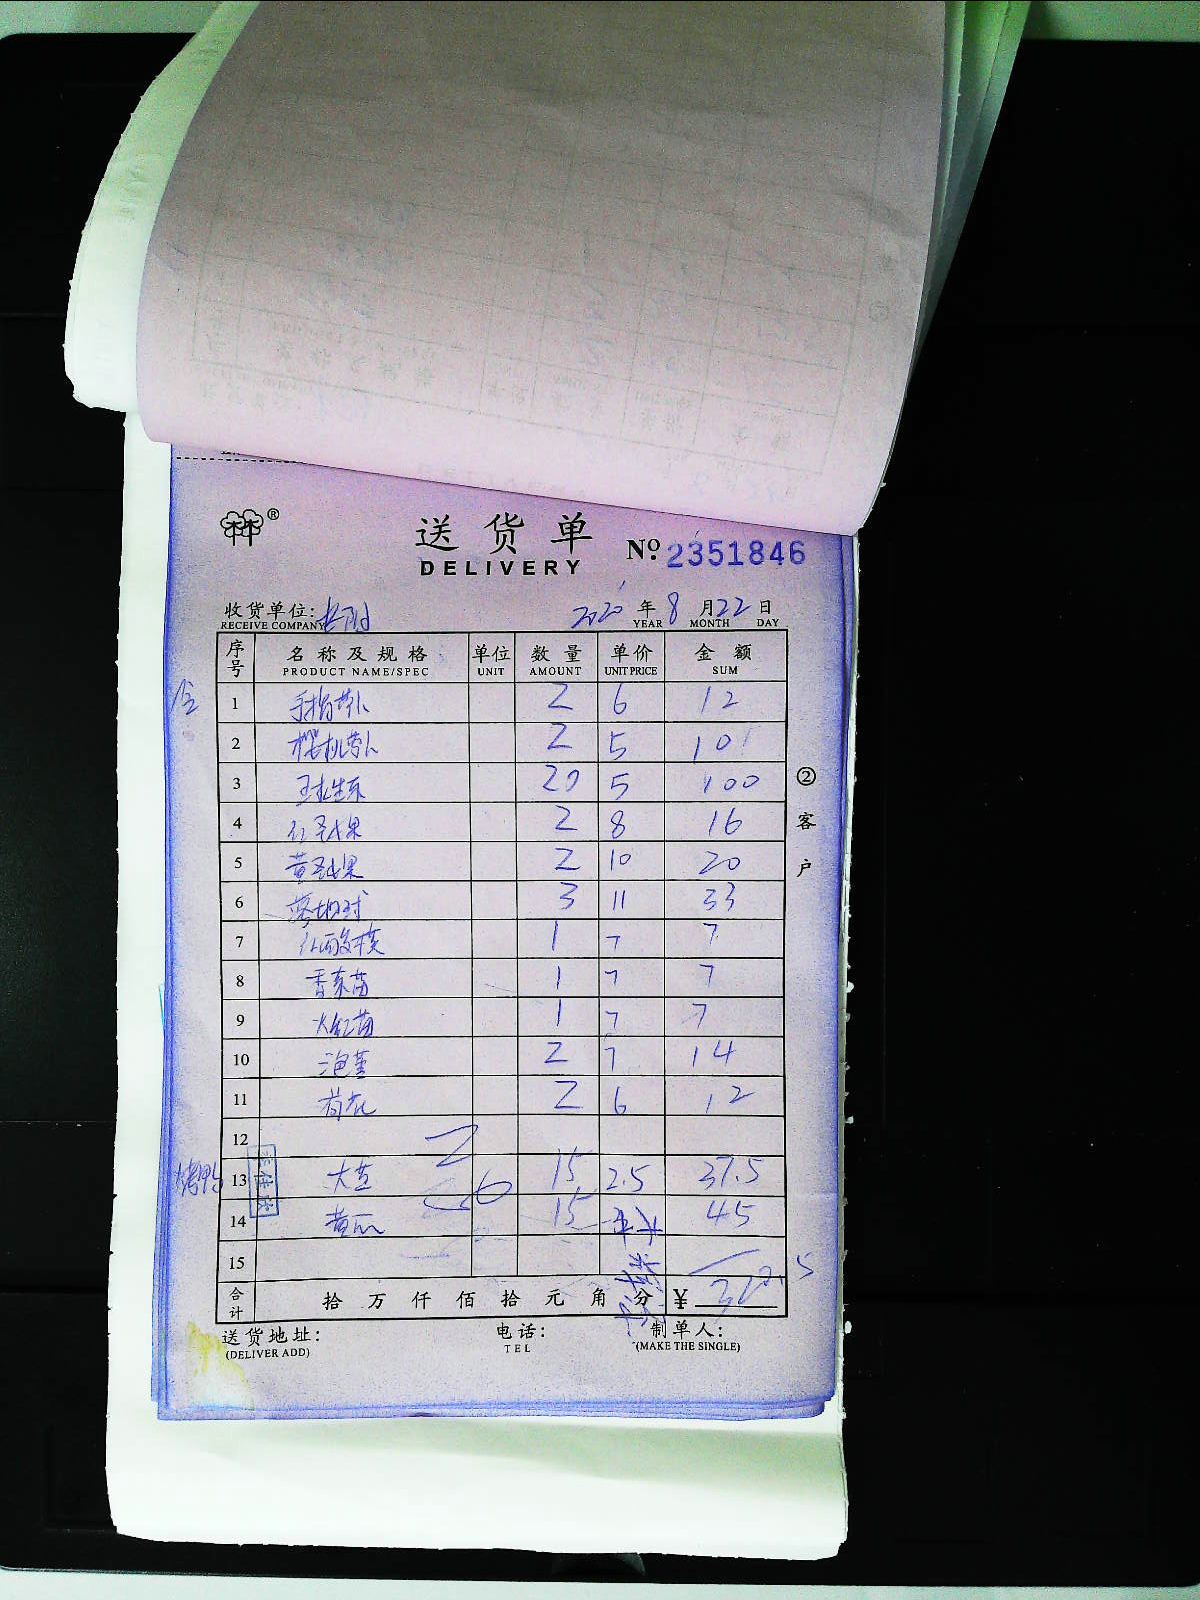 ®
送货单
DELIVERY
№ 2351846
收货单位:
RECEIVE COMPANY
2020年8月22日
YEAR MONTH DAY
序号 名称及规格 单位 数量 单价 金额
PRODUCT NAME/SPEC UNIT AMOUNT UNIT PRICE SUM
1 手指萝卜 2 6 12
2 樱桃萝卜 2 5 10
3 球生菜 20 5 100
4 红圣女果 2 8 16
5 黄圣女果 2 10 20
6 3 11 33
7 红酸模 1 7 7
8 香菜苗 1 7 7
9 火红苗 1 7 7
10 2 7 14
11 2 6 12
12
烤鸭 13 大 15 2.5 37.5
14 黄瓜 15 45
15
合计 拾万仟佰拾元角分 ¥ 320.5
②客户
送货地址:
(DELIVER ADD)
电话:
TEL
制单人:
(MAKE THE SINGLE)